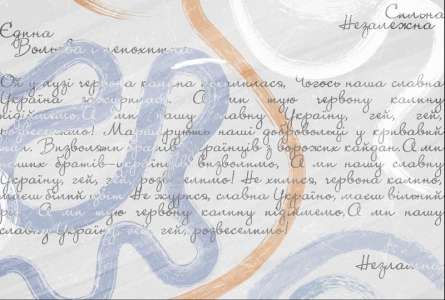 Сильна
Єдина Незалежна
Вольова і непохитна
Ой у лузі червона калина похилилася, Чогось наша славна
Україна зажурилась. А ми тую червону калину
підіймемо, А ми нашу славну Україну, гей, гей,
розвеселимо! Марширують наші добровольці у кривавий
тан, Визволяти братів-українців з ворожих кайдан. А ми
наших братів-українців визволимо, А ми нашу славну
Україну, гей, гей, розвеселимо! Не хилися, червона калино,
маєш білий цвіт. Не журися, славна Україно, маєш вільний
рід. А ми тую червону калину підіймемо, А ми нашу
славну Україну, гей, гей, розвеселимо!
Незламна